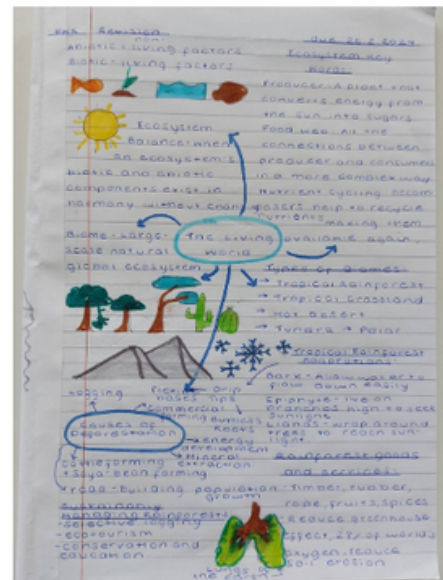 Revision
Due 26.2.2024
non-
Abiotic = living factors
Biotic = living factors
Ecosystem Key
Words:
Producer: A plant that
converts energy from
the sun into sugars
Food web: All the
connections between
producer and consumers
in a more complex way.
Nutrient cycling: decom
posers help to recycle
nutrients
making them
available again.
Ecosystem
Balance: when
an ecosystem's
biotic and abiotic
components exist in
harmony without change
Biome - Large-
scale natural
global ecosystem
The living
world
Types of Biomes:
→ Tropical Rainforest
→ Tropical Grassland
→ Hot desert
→ Tundra → Polar
Tropical Rainforest
Adaptations:
Bark - Allow water to
flow down easily
Epiphyte - live on
branches high to seek
sunlight
Lianas - wrap around
trees to reach sun-
light
Drip
Tips
Buttress
Roots
Logging
Commercial
farming
Causes of
Deforestation
→ energy
development
Mineral
extraction
+ Soya-bean farming
road-building
population
growth
Rainforest goods
and services:
Timber, rubber,
rope, fruits, spices
Reduce greenhouse
effect, 28% of world's
oxygen, reduce
soil erosion
Sustainably
Managing Rainforests
- Selective logging
- ecotourism
- Conservation and
education
Lungs of
the Earth